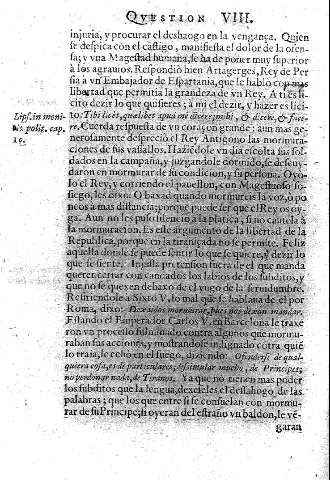 QVESTION VIII.
injuria, y procurar el desahogo en la vengança. Quien
se despica con el castigo, manifiesta el dolor de la ofen-
sa; y vna Magestad humana, se ha de poner muy superior
à los agrauios. Respondiò bien Artagerges, Rey de Per
sia à vn Embaxador de Espartania, que le hablò con mas
libertad que permitia la grandeza de vn Rey. A ti es li-
cito dezir lo que quisieres; à mi el dezir, y hazer es lici-
to. Tibi licet, quælibet apud me dicere; mihi, & dicere, & face-
Lips. in moni
tis polit. cap.
re. Cuerda respuesta de vn coraçon grande; aun mas ge-
nerosamente despreciò el Rey Antigono las murmura-
ciones de sus vassallos. Haziendole vn dia escolta sus sol-
dados en la campaña, y juzgandole dormido, se descuy-
daron en murmurar de su condicion, y su persona. Oyo-
lo el Rey, y corriendo el pauellon, con Magestuoso so-
siego, les dixo: O baxad quando murmureis la voz, ò po
neos à mas distancia; porque puede ser que el Rey os oy-
ga. Aun no les puso silencio à la platica; sino cautela à
la murmuracion. Es este argumento de la libertad de la
Republica, porque en la tirania no se permite. Feliz
aquella donde se puede sentir lo que se quiere, y dezir lo
que se siente. Injusta pretension fuera de el que manda
querer cerrar con candados los labios de los subditos, y
que no se quexen debaxo de el yugo de la seruidumbre.
Refiriendole à Sixto V. lo mal que se hablaua de èl por
Roma, dixo:
Estando el Emperador Carlos V. en Barcelona le traxe
ron vn processo fulminado contra algunos que murmu-
rauan sus acciones, y mostrandose indignado contra quiē
lo traìa, se echò en el fuego, diziendo: Ofenderse de qual-
quiera cosa, es de particulares; dissimular mucho, de Principes;
no perdonar nada, de Tiranos. Ya que no tienen mas poder
los subditos que la lengua, dexeles el desahogo de las
palabras; que los que entre si se consuelan con mormu-
rar de su Principe, si oyeran del estraño vn baldon, le vē-
garan